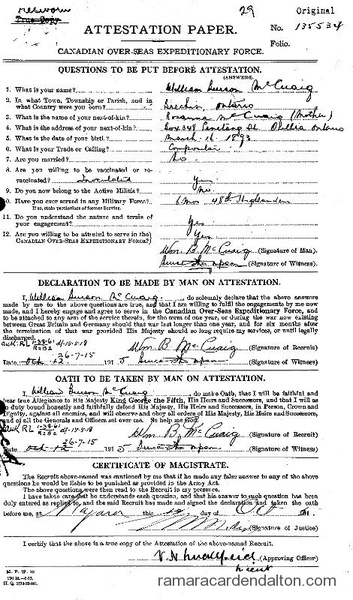 29 Original
True Copy
ATTESTATION PAPER. No. 135534
Folio.
CANADIAN OVER-SEAS EXPEDITIONARY FORCE.
QUESTIONS TO BE PUT BEFORE ATTESTATION.
(ANSWERS)
1. What is your name? William Burson McCuaig
2. In what Town, Township or Parish, and in what Country were you born? Ontario
3. What is the name of your next-of-kin? McCuaig (Mother)
4. What is the address of your next-of-kin? Box 348 Orillia Ontario
5. What is the date of your birth? March 1893
6. What is your Trade or Calling?
7. Are you married? No
8. Are you willing to be vaccinated or re-vaccinated? Yes
9. Do you now belong to the Active Militia? No
10. Have you ever served in any Military Force? 6 mos 48th Highlanders
If so, state particulars of former Service.
11. Do you understand the nature and terms of your engagement? Yes
12. Are you willing to be attested to serve in the CANADIAN OVER-SEAS EXPEDITIONARY FORCE? Yes
Wm. B. McCuaig (Signature of Man)
(Signature of Witness)
DECLARATION TO BE MADE BY MAN ON ATTESTATION.
I, William Burson McCuaig, do solemnly declare that the above answers
made by me to the above questions are true, and that I am willing to fulfil the engagements by me now
made, and I hereby engage and agree to serve in the Canadian Over-Seas Expeditionary Force, and
to be attached to any arm of the service therein, for the term of one year, or during the war now existing
between Great Britain and Germany should that war last longer than one year, and for six months after
the termination of that war provided His Majesty should so long require my services, or until legally
discharged.
Wm. B. McCuaig (Signature of Recruit)
26-7-15
(Signature of Witness)
OATH TO BE TAKEN BY MAN ON ATTESTATION.
I, William Burson McCuaig, do make Oath, that I will be faithful and
bear true Allegiance to His Majesty King George the Fifth, His Heirs and Successors, and that I will as
in duty bound honestly and faithfully defend His Majesty, His Heirs and Successors, in Person, Crown and
Dignity, against all enemies, and will observe and obey all orders of His Majesty, His Heirs and Successors,
and of all the Generals and Officers set over me. So help me God.
Wm. B. McCuaig (Signature of Recruit)
26-7-15
(Signature of Witness)
CERTIFICATE OF MAGISTRATE.
The Recruit above-named was cautioned by me that if he made any false answer to any of the above
questions he would be liable to be punished as provided in the Army Act.
The above questions were then read to the Recruit in my presence.
I have taken care that he understands each question, and that his answer to each question has been
duly entered as replied to, and the said Recruit has made and signed the declaration and taken the oath
before me, at Niagara this day of 191
(Signature of Justice)
I certify that the above is a true copy of the Attestation of the above-named Recruit.
(Approving Officer)
M. F. W. 23
ramaracardendalton.com